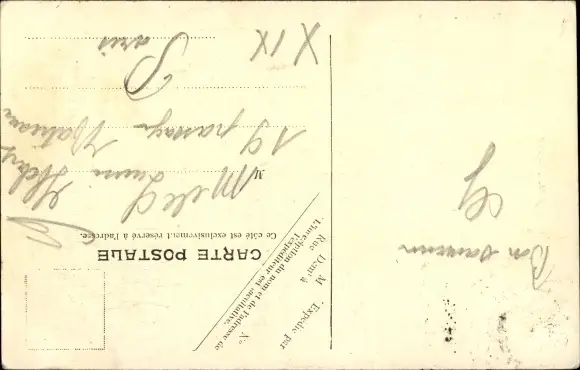 CARTE POSTALE
Ce côté est exclusivement réservé à l'adresse.
Expédié par
M
Demt à
Rue
N°
L'inscription du nom et de l'adresse de
l'expéditeur est facultative.
M
Melle
19 passage
Paris
XIX
Bon souvenir